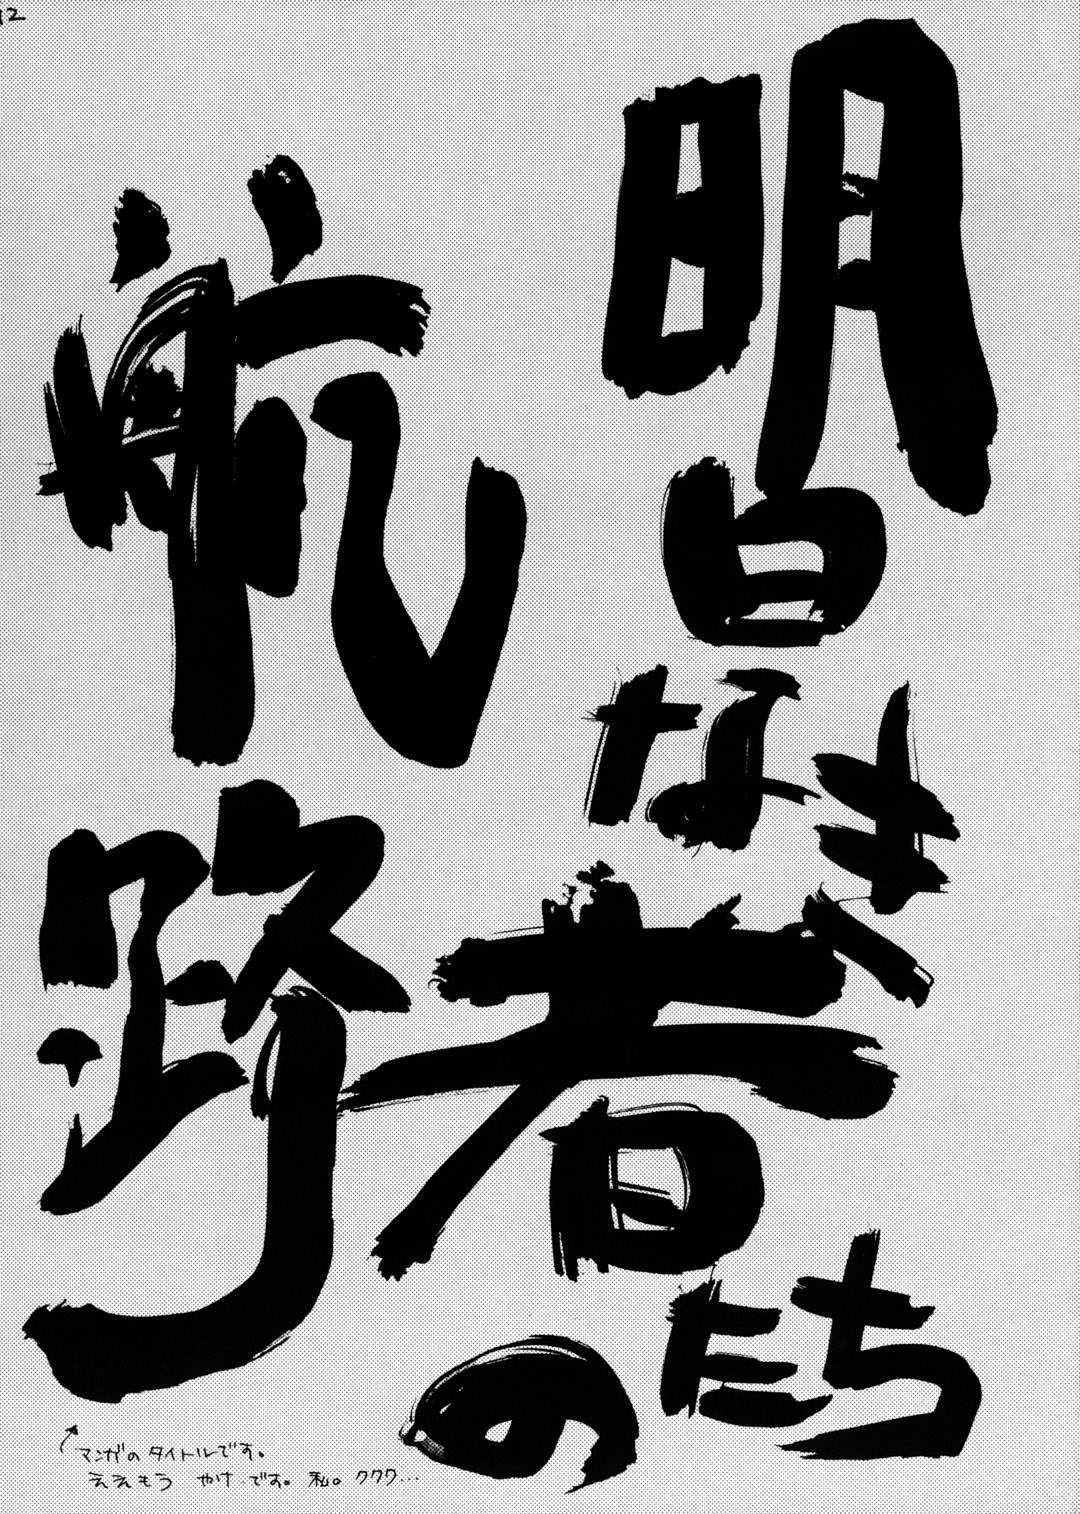 明日なき者たちの
航路
マンガのタイトルです。
ええもう やけです。私。ククク…
12